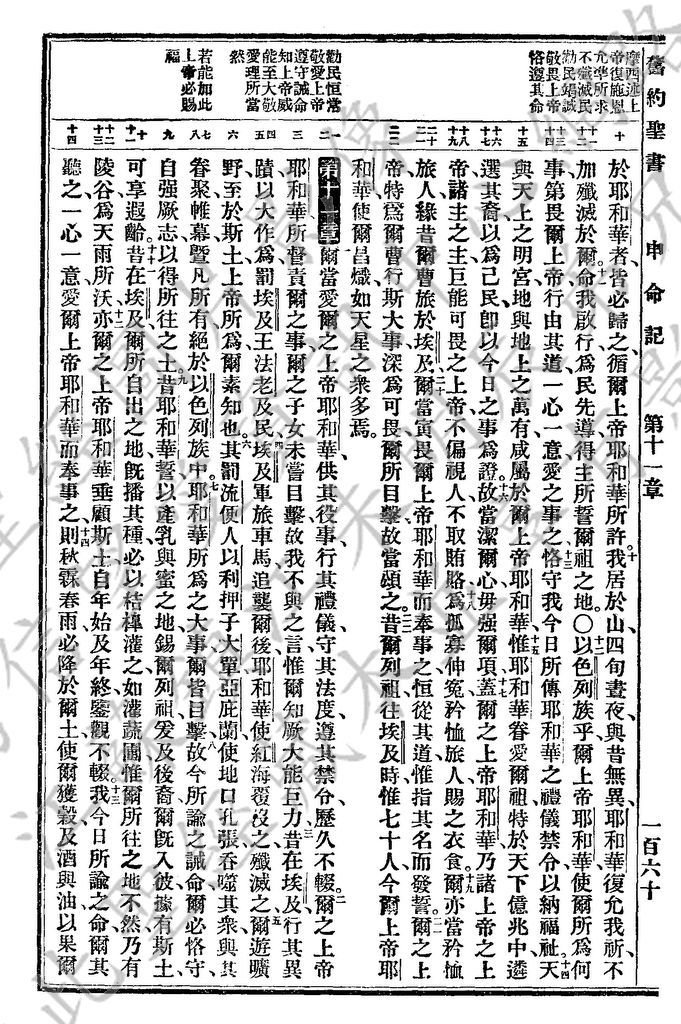 舊約聖書 申命記 第十一章 一百六十
摩西述上
帝復施恩
允準所求
不殲滅民
勸民竭誠
敬畏上帝
恪遵其命
勸民恒當
敬愛上帝
遵守誡命
知上帝威
能至大敬
愛理所當
然
若能如此
上帝必賜
福
十
十一
十二
十三
十四
十五
十六
十七
十八
十九
二十
二一
二二
一
二
三
四
五
六
七
八
九
十
十一
十二
十三
十四
於耶和華者皆必歸之循爾上帝耶和華所許、我居於山四旬晝夜與昔無異耶和華復允我祈不
加殲滅於爾命我啟行爲民先導得主所誓爾祖之地〇以色列族乎爾上帝耶和華使爾所爲何
事第畏爾上帝行由其道一心一意愛之事之恪守我今日所傳耶和華之禮儀禁令以納福祉天
與天上之明宮地與地上之萬有咸屬於爾上帝耶和華惟耶和華眷愛爾祖特於天下億兆中遴
選其裔以爲己民卽以今日之事爲證故當潔爾心毋强爾項蓋爾之上帝耶和華乃諸上帝之上
帝諸主之主巨能可畏之上帝不偏視人不取賄賂爲孤寡伸冤矜恤旅人賜之衣食爾亦當矜恤
旅人緣昔爾曹旅於埃及爾當寅畏爾上帝耶和華而奉事之恒從其道惟指其名而發誓爾之上
帝特爲爾曹行斯大事深爲可畏爾所目擊故當頌之昔爾列祖往埃及時惟七十人今爾上帝耶
和華使爾昌熾如天星之衆多焉
第十一章 爾當愛爾之上帝耶和華供其役事行其禮儀守其法度遵其禁令歷久不輟爾之上帝
耶和華所督責爾之事爾之子女未嘗目擊故我不與之言惟爾知厥大能巨力昔在埃及行其異
蹟以大作爲罰埃及王法老及民埃及軍旅車馬追襲爾後耶和華使紅海覆沒之殲滅之爾遊曠
野至於斯土上帝所爲爾素知也其罰流便人以利押子大單亞庇蘭使地口孔張吞噬其衆與其
眷聚帷幕曁凡所有絕於以色列族中耶和華所爲之大事爾皆目擊故今所諭之誡命爾必恪守
自强厥志以得所往之土昔耶和華誓以產乳與蜜之地錫爾列祖爰及後裔爾旣入彼據有斯土
可享遐齡昔在埃及爾所自出之地旣播其種必以桔槹灌之如灌蔬圃惟爾所往之地不然乃有
陵谷爲天雨所沃亦爾之上帝耶和華垂顧斯土自年始及年終鑒觀不輟我今日所諭之命爾其
聽之一心一意愛爾上帝耶和華而奉事之則秋霖春雨必降於爾土使爾獲穀及酒與油以果爾